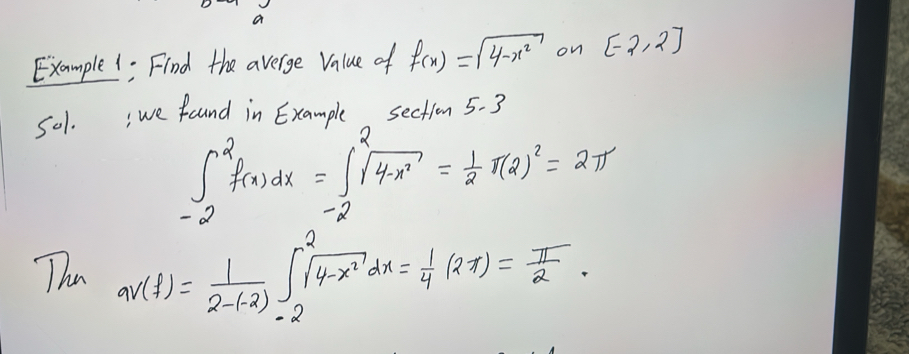 a
Example 1: Find the averge value of f(x) = √4-x² on [-2,2]
Sol. : we found in Example section 5-3
∫₋₂² f(x) dx = ∫₋₂² √4-x² = 1/2 π(2)² = 2π
Then av(f) = 1/(2-(-2)) ∫₋₂² √4-x² dx = 1/4 (2π) = π/2 .